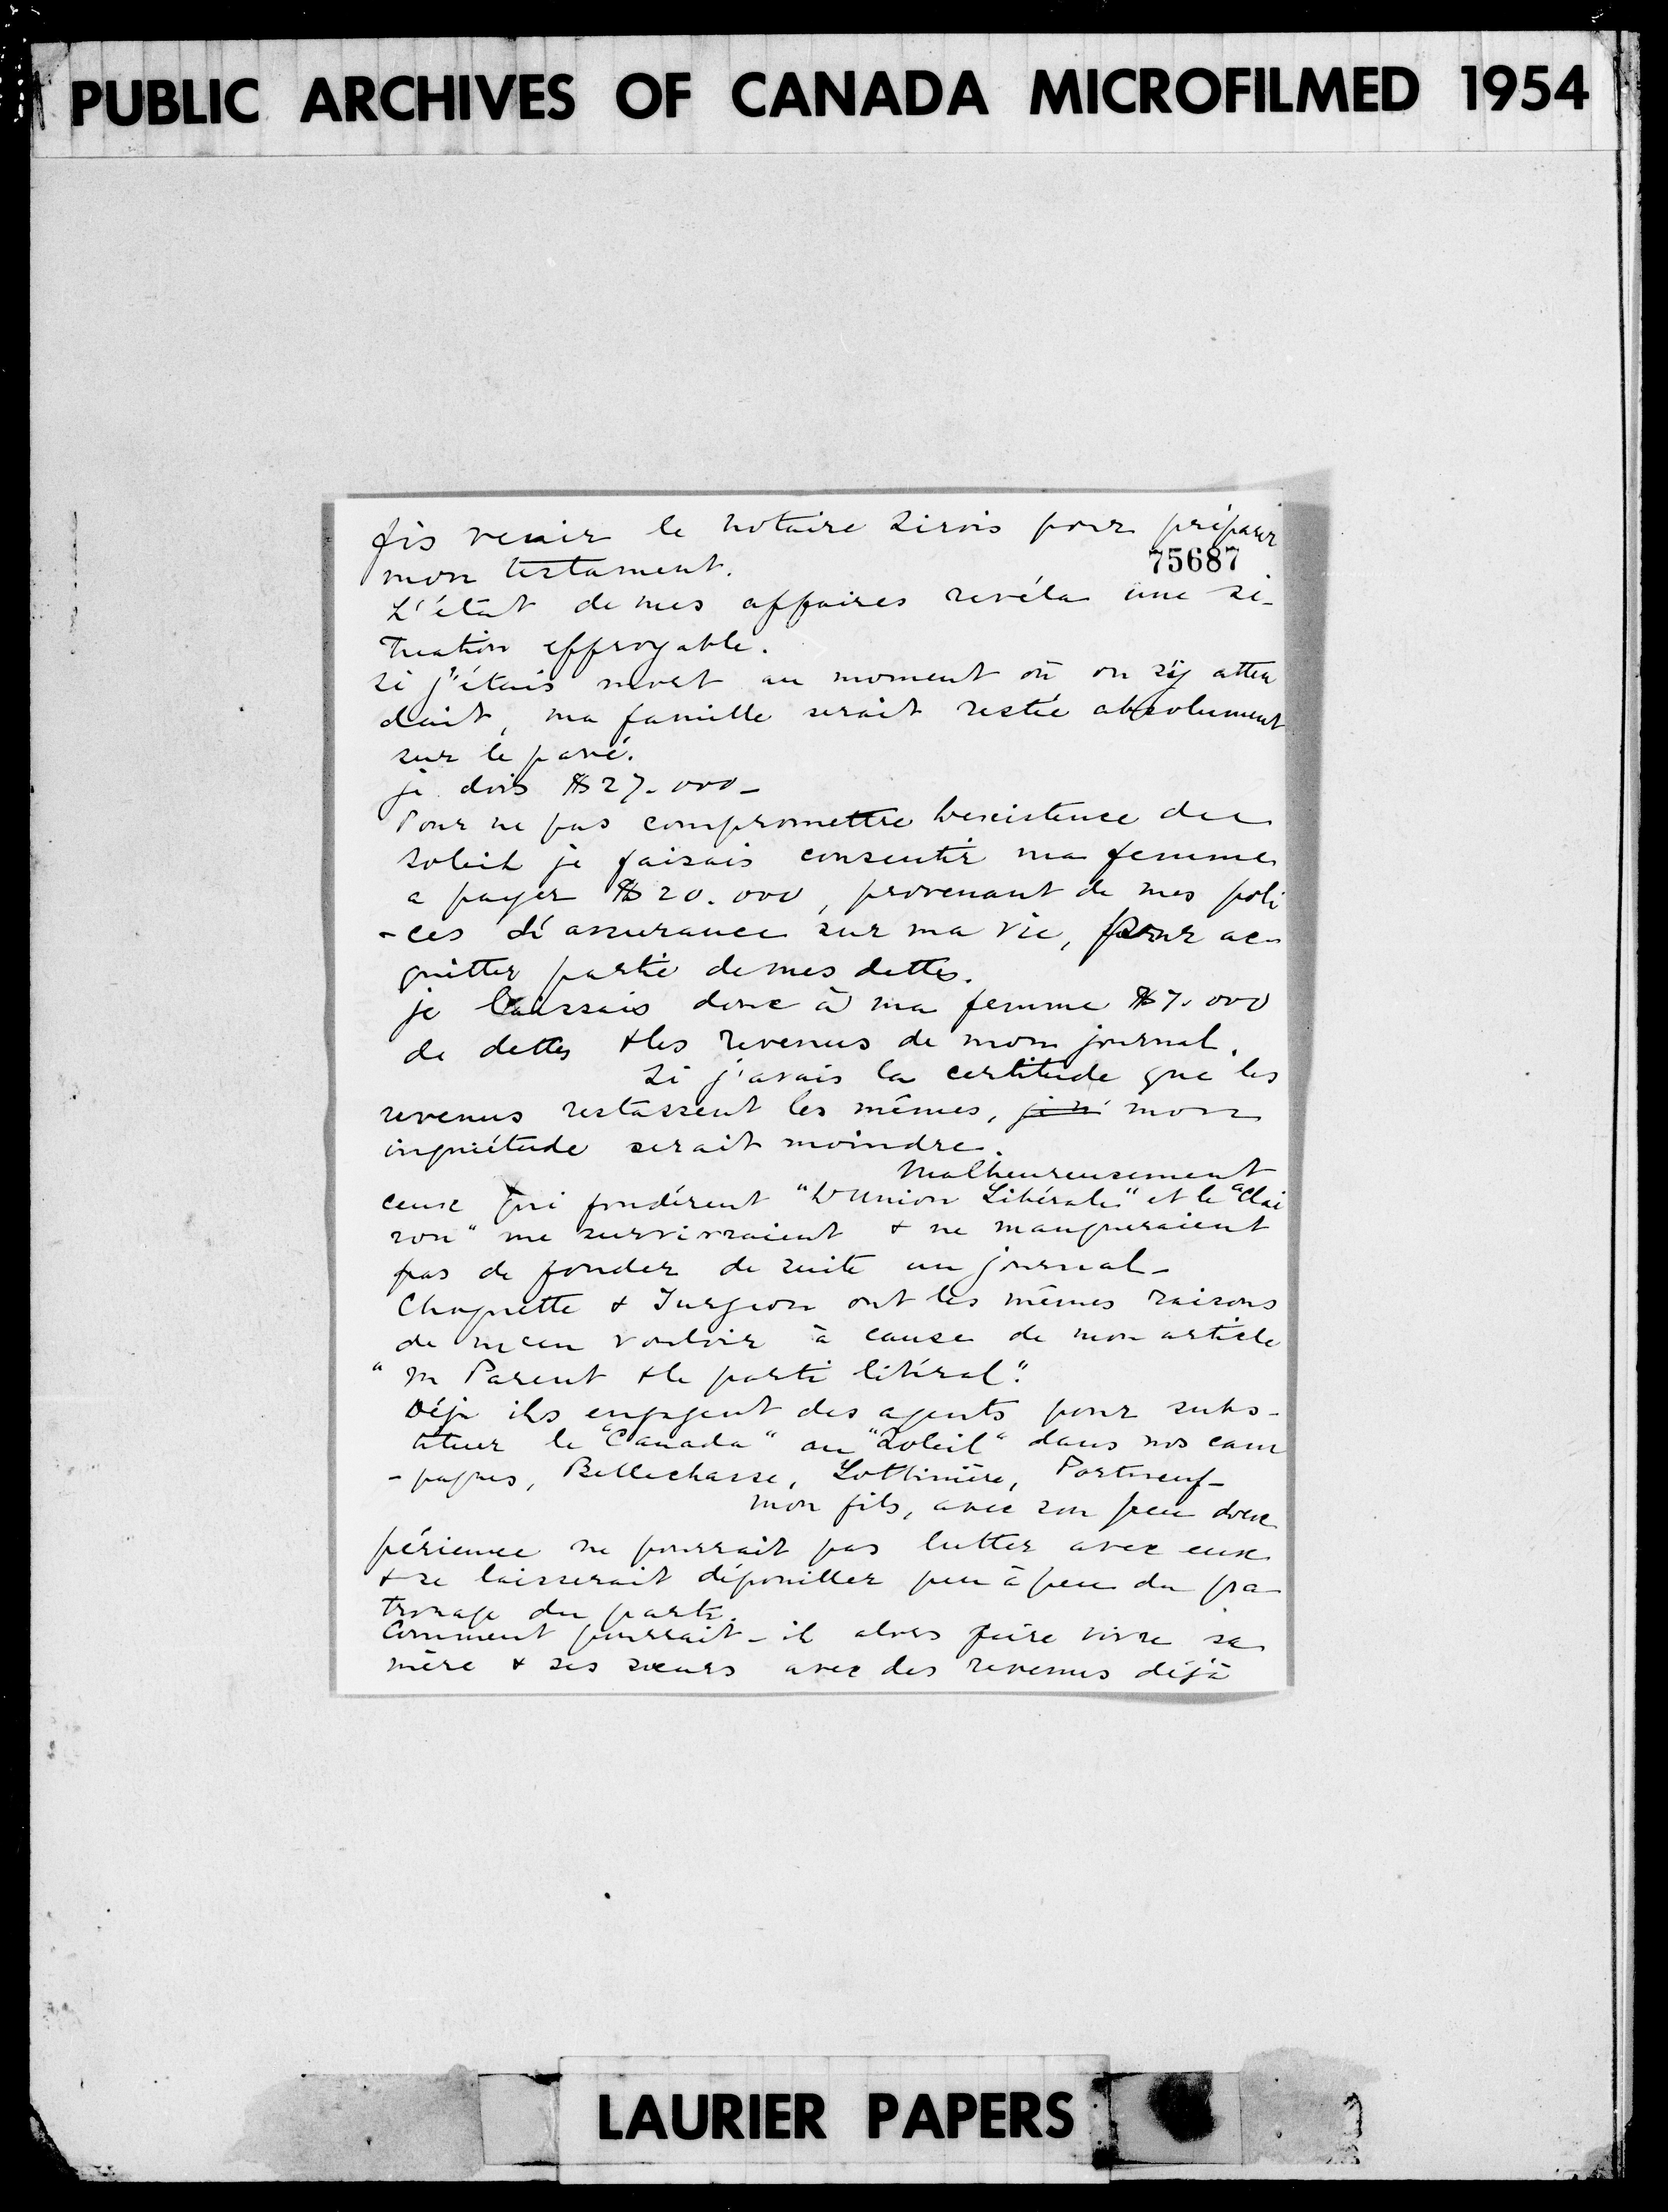 PUBLIC ARCHIVES OF CANADA MICROFILMED 1954
fis venir le notaire Sirois pour préparer
75687
mon testament.
L'état de mes affaires revéla une si-
tuation effroyable.
si j'étais mort au moment où on s'y atten
dait, ma famille serait restée absolument
sur le pavé.
je dois $27.000-
Pour ne pas compromettre l'existence du
Soleil je faisais consentir ma femme
a payer $20.000, provenant de mes poli
-ces d'assurance sur ma vie, pour ac-
quitter partie de mes dettes.
je laissais donc à ma femme $7.000
de dettes & les revenus de mon journal.
Si j'avais la certitude que les
revenus restassent les mêmes, mon
inquiétude serait moindre.
Malheureusement
ceux qui fondérent "L'Union Libérale" et le "Clai
ron" me survivraient & ne manqueraient
pas de fonder de suite un journal-
Choquette & Turgeon ont les mêmes raisons
de m'en vouloir à cause de mon article
"M Parent & le parti libéral".
Déja ils engagent des agents pour subs-
tituer le "Canada" au "Soleil" dans nos cam
-pagnes, Bellechasse, Lotbinière, Portneuf-
Mon fils, avec son peu d'ex
périence ne pourrait pas lutter avec eux
& se laisserait dépouiller peu à peu du pa
tronage du parti.
Comment pourrait-il alors faire vivre sa
mère & ses soeurs avec des revenus déjà
LAURIER PAPERS